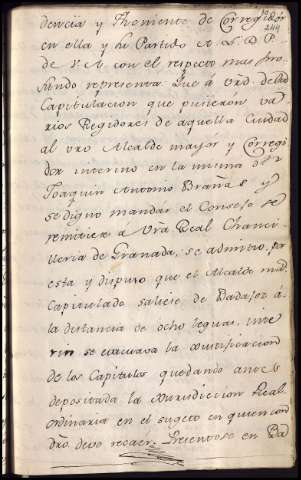 244
dencia y Theniente de Corregidor
en ella y su Partido A. L. D. P.
de V. A. con el respeto mas pro-
fundo representa Que á vrd. de la
Capitulacion que pusieron va-
rios Regidores de aquella Ciudad
al vro Alcalde mayor y Corregi-
dor interino en la misma dn
Joaquin Antonio Brañas y
se digno mandar el Consejo se
remitiese a Vra Real Chanci-
lleria de Granada, se admitio por
esta y dispuso que el Alcalde mor
Capitulado saliese de Badajoz á
la distancia de ocho leguas, inte-
rin se evacuava la Justificacion
de los Capitulos quedando
depositada la Jurisdiccion Real
ordinaria en el sugeto en quien con
dro. devo recaer; Presentose en